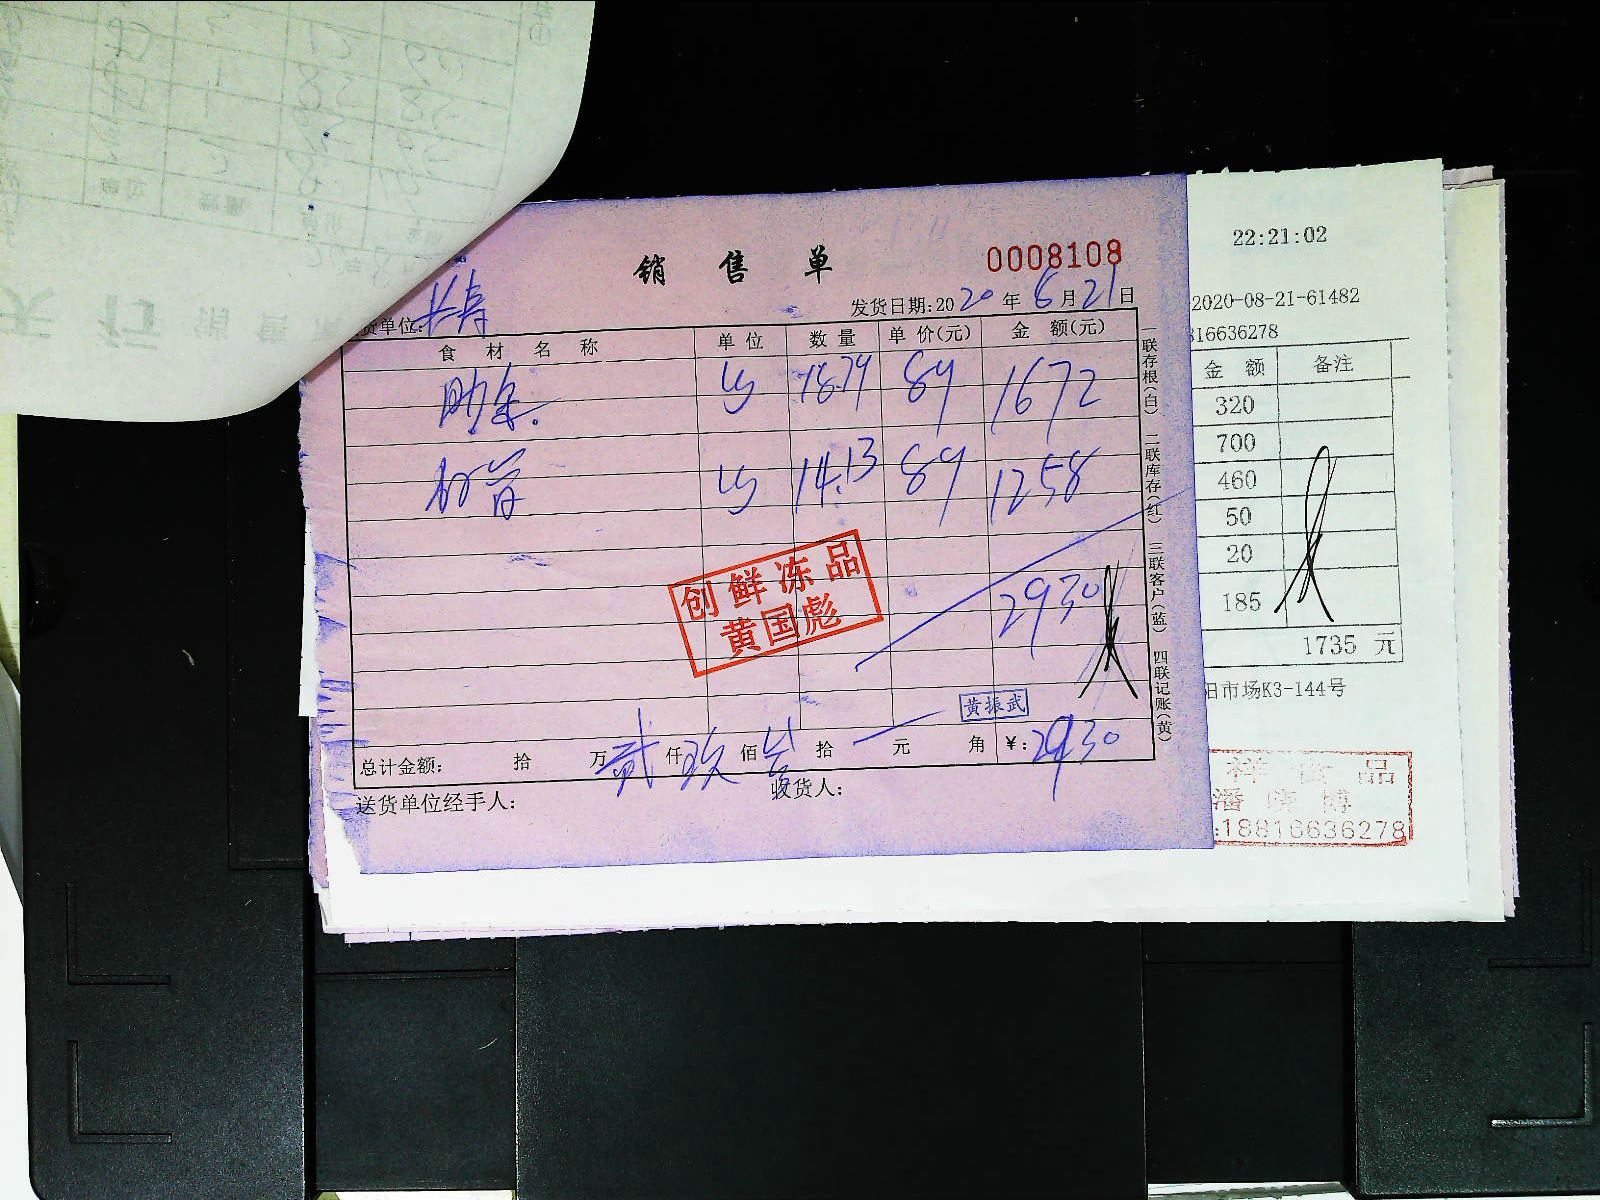 销 售 单
0008108
货单位:长寿
发货日期:2020年6月21日
食 材 名 称 单 位 数 量 单 价(元) 金 额(元)
18.79 89 1672
14.13 89 1258
2930
创鲜冻品
黄国彪
黄振武
总计金额: 拾 万 贰 仟 玖 佰 叁 拾 元 角 ¥:2930
送货单位经手人: 收货人:
一联存根(白) 二联库存(红) 三联客户(蓝) 四联记账(黄)
22:21:02
2020-08-21-61482
816636278
金 额 备注
320
700
460
50
20
185
1735 元
阳市场K3-144号
祥 食 品
潘 晓 博
:18816636278